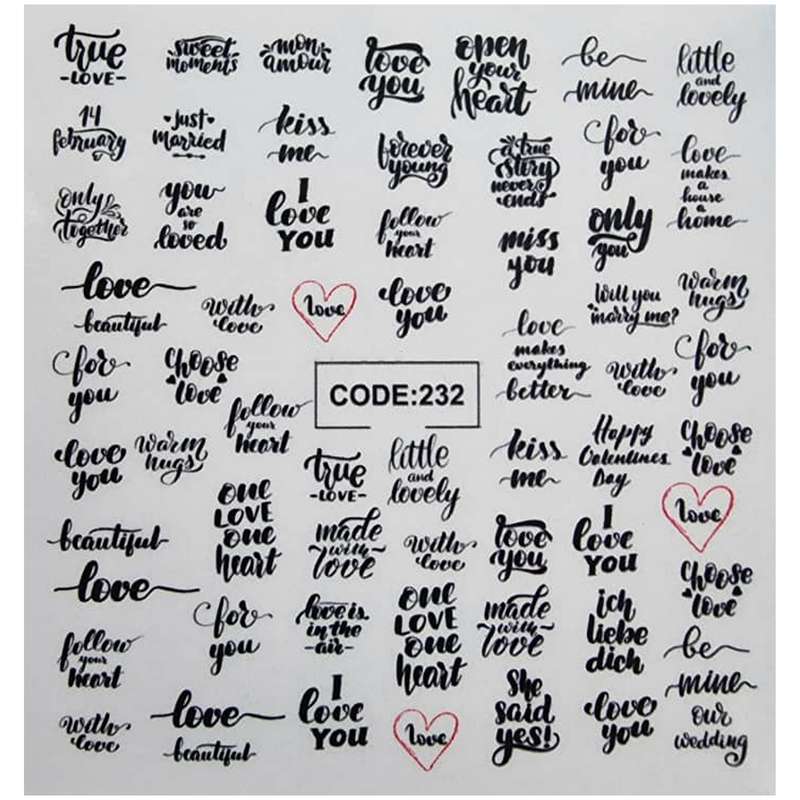 true
-LOVE-
sweet
moments
mon
amour
love
you
open
your
heart
be
mine
little
and
lovely
14
february
just
married
kiss
me
forever
young
a true
story
never
ends
for
you
love
makes
a
house
a
home
only
together
you
are
so
loved
I
love
YOU
follow
your
heart
miss
you
only
you
love
beautiful
with
love
love
love
you
Will you
marry me?
warm
hugs
for
you
choose
love
love
makes
everything
better
with
love
for
you
CODE:232
follow
your
heart
love
you
warm
hugs
true
-LOVE-
little
and
lovely
kiss
me
Happy
Valentines
Day
choose
love
one
LOVE
one
heart
love
beautiful
love
made
with
love
with
love
love
you
I
love
YOU
choose
love
for
you
love is
in the
-air-
one
LOVE
one
heart
made
with
love
ich
liebe
dich
be
mine
follow
your
heart
with
love
love
beautiful
I
love
YOU
love
she
said
yes!
love
you
our
wedding